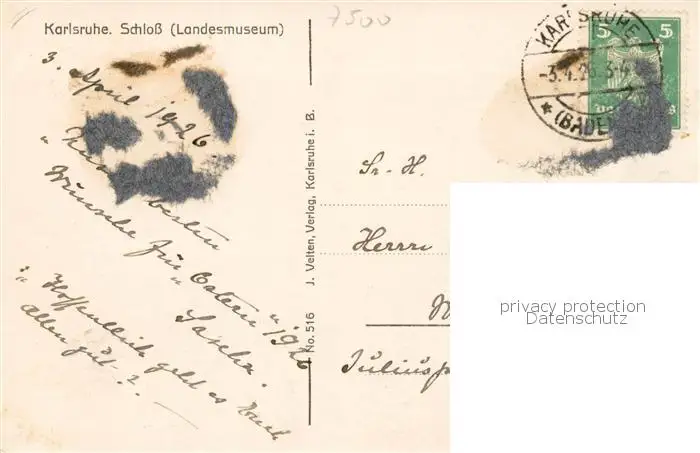 Karlsruhe. Schloß (Landesmuseum)
7500
KARLSRUHE
-3.4.26.3-4
★ (BADEN)
5 5
3. April 1926
besten
Wünsche für Ostern 1926
Sascha.
Hoffentlich geht es Euch
allen gut-?.
No. 516 J. Velten, Verlag, Karlsruhe i. B.
Sr. H.
Herrn
privacy protection
Datenschutz